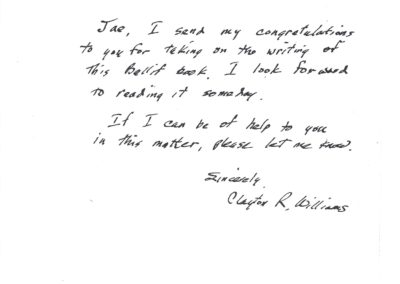 Joe, I send my congratulations
to you for taking on the writing of
this book. I look forward
to reading it someday.
If I can be of help to you
in this matter, please let me know.
Sincerely,
Clayton R. Williams